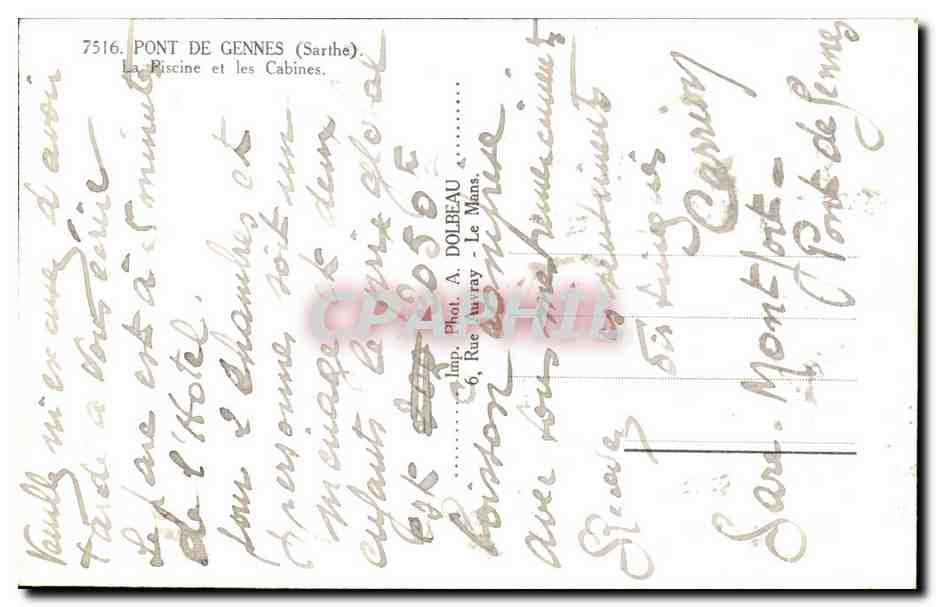 7516. PONT DE GENNES (Sarthe).
La Piscine et les Cabines.
Imp. Phot. A. DOLBEAU
6, Rue Auvray - Le Mans.
CPAPHIL
m'excuser d'avoir
tardé à vous écrire
La gare est à 5 minutes
de l'Hotel.
pour 2 chambres et
personnes soit un
ménage et deux
enfants le prix global
est 2050 F
boisson comprise
avec tous mes remerciements
Recevez
sentiments
très
Perrin
Gare. Montfort-
Pont de Gennes